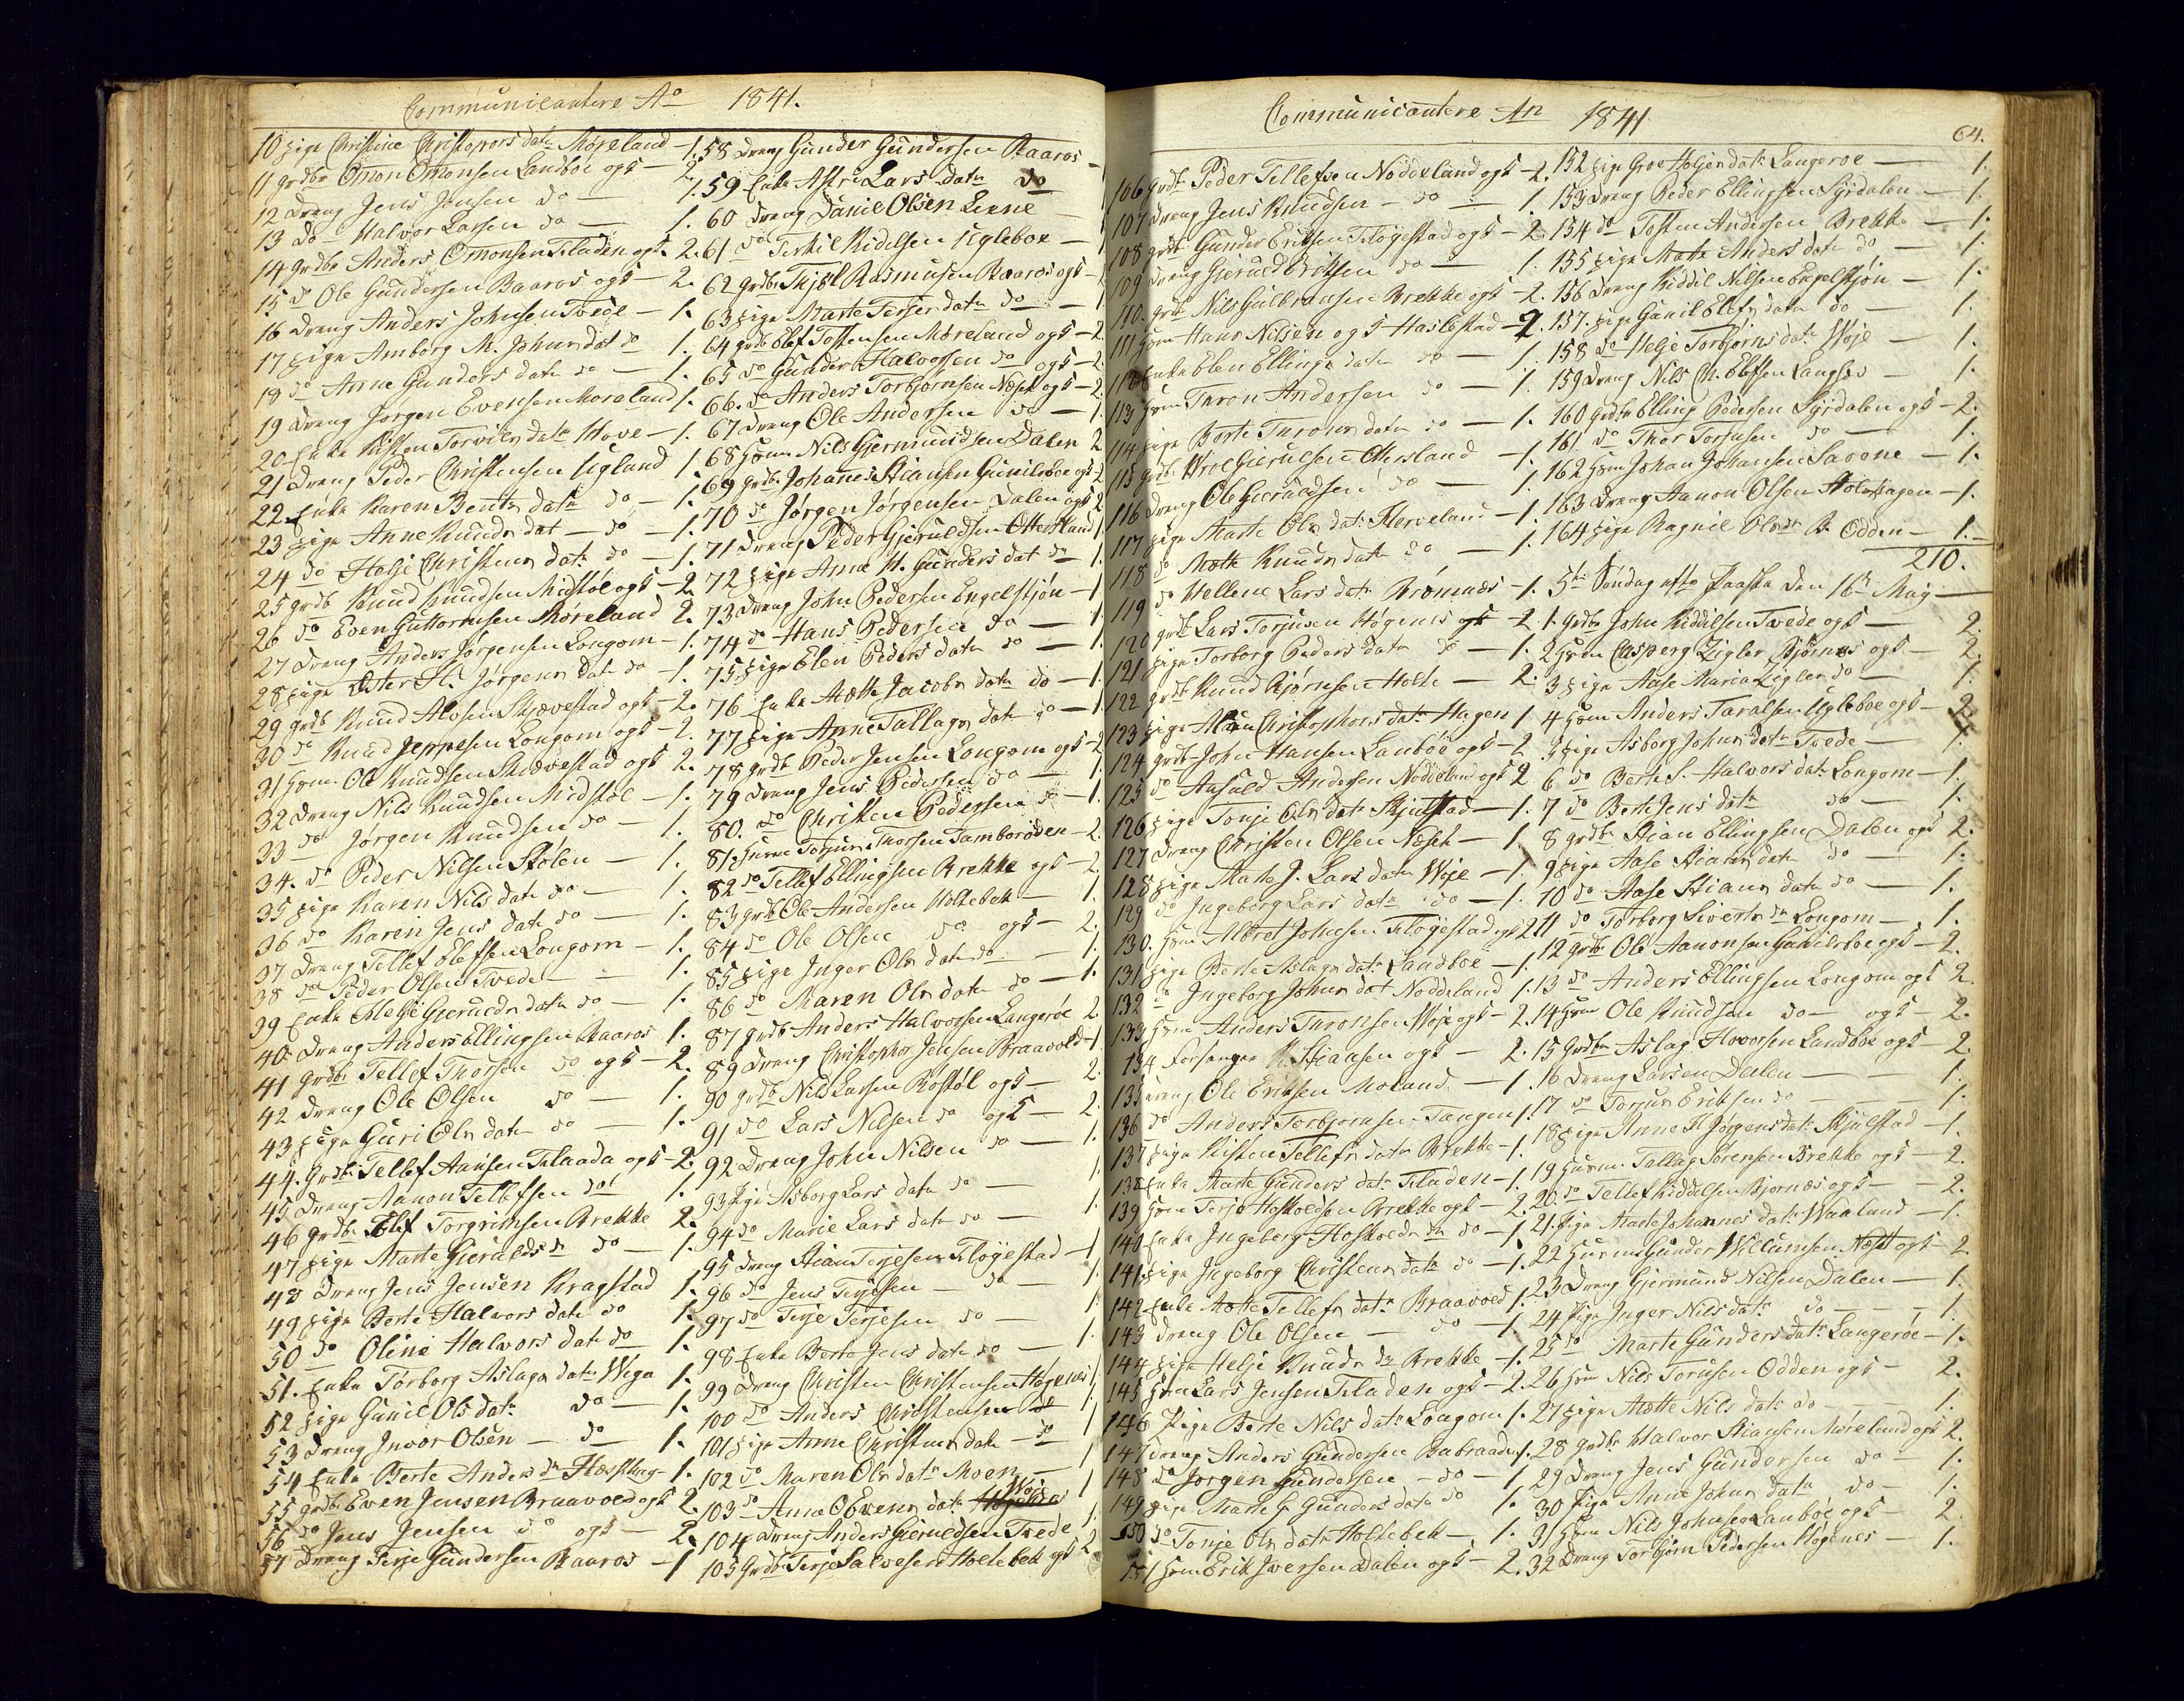 Communicantere Ao 1841.
10 pige Christine Christopors datr Møreland - 1.
11 grdbr Omon Omonsen Landboe ogs - 2
12 dreng Jens Jensen do - 1.
13 do Halvor Larsen do - 1.
14 grdbr Anders Omonsen Fladen ogs - 2.
15 do Ole Gundersen Baaros ogs - 2.
16 dreng Anders Johnsen Tvede - 1.
17 pige Amborg M. Johns dat do 1.
19 do Anne Gunders datr do - 1.
19 dreng Jørgen Evensen Moreland 1.
20 Enke Kisten Torvils datr Hove - 1.
21 dreng Peder Christensen Ugland 1
22 Enke Karen Bents datr do - 1.
23 pige Anne Knuds dat - do - 1.
24 do Helje Christens datr do - 1.
25 grdb Knud Knudsen Midstøl ogs - 2.
26 do Even Guttormsen Møreland 2.
27 dreng Anders Jørgensen Longom - 1.
28 pige Ester H. Jørgens dat do - 1.
29 grdb Knud Alvsen Skjævestad ogs - 2.
30 do Knud Jeppesen Longom ogs - 2.
31 Hom. Ole Knudsen Skiævestad ogs 2.
32 dreng Nils Knudsen Midstøl - 1.
33 do Jørgen Knudsen do - 1.
34. do Peder Nilsen Stølen - 1.
35 pige Karen Nils datr do - 1.
36 do Karen Jens datr do - 1.
37 dreng Tellef Elefsen Longom - 1.
38 do Peder Olsen Tvede - 1.
39 Enke Helje Gjeruds datr do - 1.
40 dreng Anders Ellingsen Baaros 1.
41 grdbr Tellef Thorsen do ogs - 2.
42 dreng Ole Olsen do - 1.
43 pige Guri Ols datr do - 1.
44. grdbr Tellef Aansen Flaada ogs - 2.
45 dreng Aanon Tellefsen do 1.
46 grdbr Elef Torgrimsen Brekke 2.
47 pige Marte Gieralds dr do - 1.
48 dreng Jens Jensen Kragstad 1.
49 pige Berte Halvors datr do 1.
50 do Oline Halvors dat do 1.
51. Enke Torborg Aslags datr Wege 1.
52 pige Gunil Ols datr do - 1.
53 dreng Invor Olsen - do 1.
54 Enke Berte Anders dr - 1.
55 grdbr Even Jensen Braavoed ogs 2.
56 do Jens Jensen do ogs - 2.
57 dreng Terje Gundersen Baaros - 1
58 dreng Gunder Gundersen Baaros
59 Enke Astri Lars datr do
60 dreng Daniel Olsen Leene
61 do Terkil Kidelsen Ugleboe -
62 grdbr Thjøl Rasmusen Baaros ogs -
63 pige Marte Terjes datr do - 1
64 grdb Elef Tostensen Møreland ogs - 2
65 do Gunder Halvorsen do ogs - 2
66. do Anders Torbjørnsen Næset ogs - 2.
67 dreng Ole Andersen do - 1.
68 Hom Nils Gjermundsen Dalen 2
69 grdbr Johanes Stiansen Gunilsboe ogs 2
70 do Jørgen Jørgensen Dalen ogs 2
71 dreng Peder Gjeruldsen Ottersland 1
72 pige Anne H. Gunders dat do 1.
73 dreng John Pedersen Engelstjøn - 1
74 do Hans Pedersen do - 1.
75 pige Elen Peders datr do - 1.
76 Enke Mette Jacobs datr do - 1.
77 pige Anne Tallags datr do - 1
78 grdb Peder Jensen Longom ogs - 2
79 dreng Jens Pedersen do - 1.
80. do Christen Pedersen do - 1.
81. Huem Torjus Thorsen Tamborøden - 2.
82 do Tellef Ellingsen Brekke ogs - 2
83 grdb Ole Andersen Holtebek - 1
84 do Ole Olsen do ogs - 2.
85 pige Inger Ols datr do - 1.
86 do Maren Ols datr do - 1.
87 grdb Anders Halvorsen Langerøe 2
89 dreng Christophor Jensen Braavold - 1
90 grdb Nils Larsen Røstøl ogs - 2
91 do Lars Nilsen do ogs - 2
92 dreng John Nilsen do - 1.
93 pige Asborg Lars datr do -
94 do Marie Lars datr do - 1
95 dreng Stian Terjesen Fløyestad - 1
96 do Jens Terjesen - do - 1
97 do Terje Terjesen do - 1
98 Enke Berte Jens datr do - 1.
99 dreng Christen Christensen Høgenes 1
100 do Anders Christensen do 1
101 pige Anne Christens datr - do 1
102 do Maren Ols datr Moen 1
103 do Anne O Evens datr Woje 1.
104 dreng Anders Gjeruldsen Tvede 1
105 grdbr Terje Salvesen Holtebek ogs 2
Communicantere An 1841
64.
106 grdb Peder Tellefsen Noddeland ogs - 2.
107 dreng Jens Knudsen - do - 1.
108 grdb Gunder Eriksen Fløyestad ogs - 2.
109 dreng Gjeruld Eriksen do - 1.
110. grdb Nils Gulbransen Brekke ogs - 2.
111 Hom Hans Nilsen ogs Haslestad - 2.
112 Enke Elen Ellings datr do - 1.
113 Hom Thron Andersen do - 1.
114 pige Berte Throns datr do - 1.
115 grdb Wroe Gjerulsen Ottersland - 1.
116 dreng Ole Gjeruldsen do - 1.
117 pige Marte Ols datr Flerveland - 1.
118 do Mette Knuds datr do - 1.
119 do Hellene Lars datr Bromnæs - 1.
120 grdb Lars Torjusen Høgenes ogs - 2
121 pige Torborg Peders datr do - 1.
122 grdb Knud Bjørnsen Holte - 2.
123 pige Alen Christophors datr Hagen 1
124 grdb John Hansen Lanbøe ogs - 2
125 do Ansuld Andersen Noddeland ogs 2
126 pige Tonje Ols datr Skjulstad - 1.
127 dreng Christen Olsen Næset - 1
128 pige Marte J. Lars datr Woje - 1.
129 do Ingeborg Lars datr do - 1.
130. Hom Meret Johnsen Fløyestad ogs 2
131 pige Berte Aslags datr Landboe - 1.
132 do Ingeborg Johns dat Noddeland 1.
133 Hom Anders Thronsen Woje ogs - 2.
134 Forsanger K. Stiansen ogs - 2.
135 dreng Ole Eriksen Moland - 1.
136 do Anders Torbjørnsen Tangen 1.
137 pige Kisten Tellefs datr Brekke - 1.
138 Enke Marte Gunders datr Fladen - 1.
139 Hom Terje Hoskoldsen Brekke ogs - 2.
140 Enke Ingeborg Hoskolds dr do - 1.
141. pige Ingeborg Christens datr do - 1.
142 Enke Mette Tellefs datr Braavoed 1.
143 dreng Ole Olsen - do - 1.
144 pige Helje Knuds dr Brekke - 1.
145 Hom Lars Jensen Fladen ogs - 2.
146 Pige Berte Nils datr Longom 1.
147 dreng Anders Gundersen Babraaden 1.
148 do Jørgen Gundersen - do - 1
149 pige Marte G Gunders datr do 1.
150 do Tonje Ols datr Holtebek - 1.
151 Hom Erik Iversen Dalen ogs - 2.
152 pige Groe Holjers datr Langeroe - 1.
153 dreng Peder Ellingsen Syrdalen - 1.
154 do Tosten Andersen Brekke - 1.
155 pige Mette Anders datr do - 1.
156 dreng Kiddil Nilsen Engelstjøn - 1.
157. pige Gunil Elefs datr do - 1.
158 do Helje Torbjørns datr Woje - 1.
159 dreng Nils Ch. Elefsen Langsæ - 1.
160 grdbr Elling Pedersen Syrdalen ogs - 2.
161 do Thor Torjusen do - 1.
162 Hom Johan Johansen Savene - 1.
163 dreng Aanon Olsen Holmhagen - 1.
164 pige Ragnil Ols dr B. Odden - 1.
210.
5te Søndag efter Paaske den 16de Maj
1. grdbr John Kiddilsen Tvede ogs - 2.
2 Hom Casperg Zigler Bjørnes ogs - 2.
3 pige Aase Maria Zigler do - 1.
4 Hom Anders Taralsen Ugleboe ogs - 2.
5 pige Asborg Johns datr Tvede - 1.
6 do Berte S. Halvors datr Longom - 1.
7 do Berte Jens datr do - 1.
8 grdbr Stian Ellingsen Dalen ogs 2.
9 pige Aase Stians datr do - 1.
10 do Aase Stians datr do - 1.
11 do Torborg Siverts dr Longom - 1.
12 grdbr Ole Aanonsen Gunilsboe ogs - 2.
13 do Anders Ellingsen Longom ogs 2.
14 Hom Ole Knudsen do - ogs - 2.
15 grdbr Aslag Hovorsen Landboe ogs - 2.
16 dreng Larsen Dalen - 1.
17 do Torjus Eriksen do - 1.
18 pige Anne H Jørgens datr Skjulstad - 1.
19 Huem Tallag Sørensen Brekke ogs - 2.
20. do Tellef Kiddelsen Bjornæs ogs - 2.
21. Pige Marte Johannes datr Waaland - 1.
22 Huem Gunder Willumsen Næset ogs - 2
23 dreng Gjermund Nilsen Dalen - 1.
24 Pige Inger Nils datr do - 1.
25 do Marte Gunders datr Langerøe - 1.
26 Hom Nils Torusen Odden ogs - 2.
27 pige Mette Nils datr do - 1.
28 grdbr Halvor Stiansen Møreland ogs 2.
29 dreng Jens Gundersen do - 1.
30 Pige Anne Johns datr do - 1.
31 Hom Nils Johnsen Lanboe ogs - 2
32 dreng Torbjørn Pedersen Høgenes - 1.